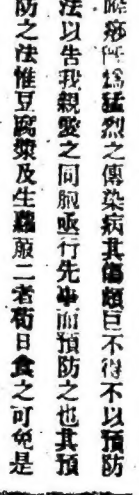 喉痧性爲猛烈之傳染病其傷頗巨不得不以預防
法以告我親愛之同胞亟行先事而預防之也其預
防之法惟豆腐漿及生蘿菔二者苟日食之可免是